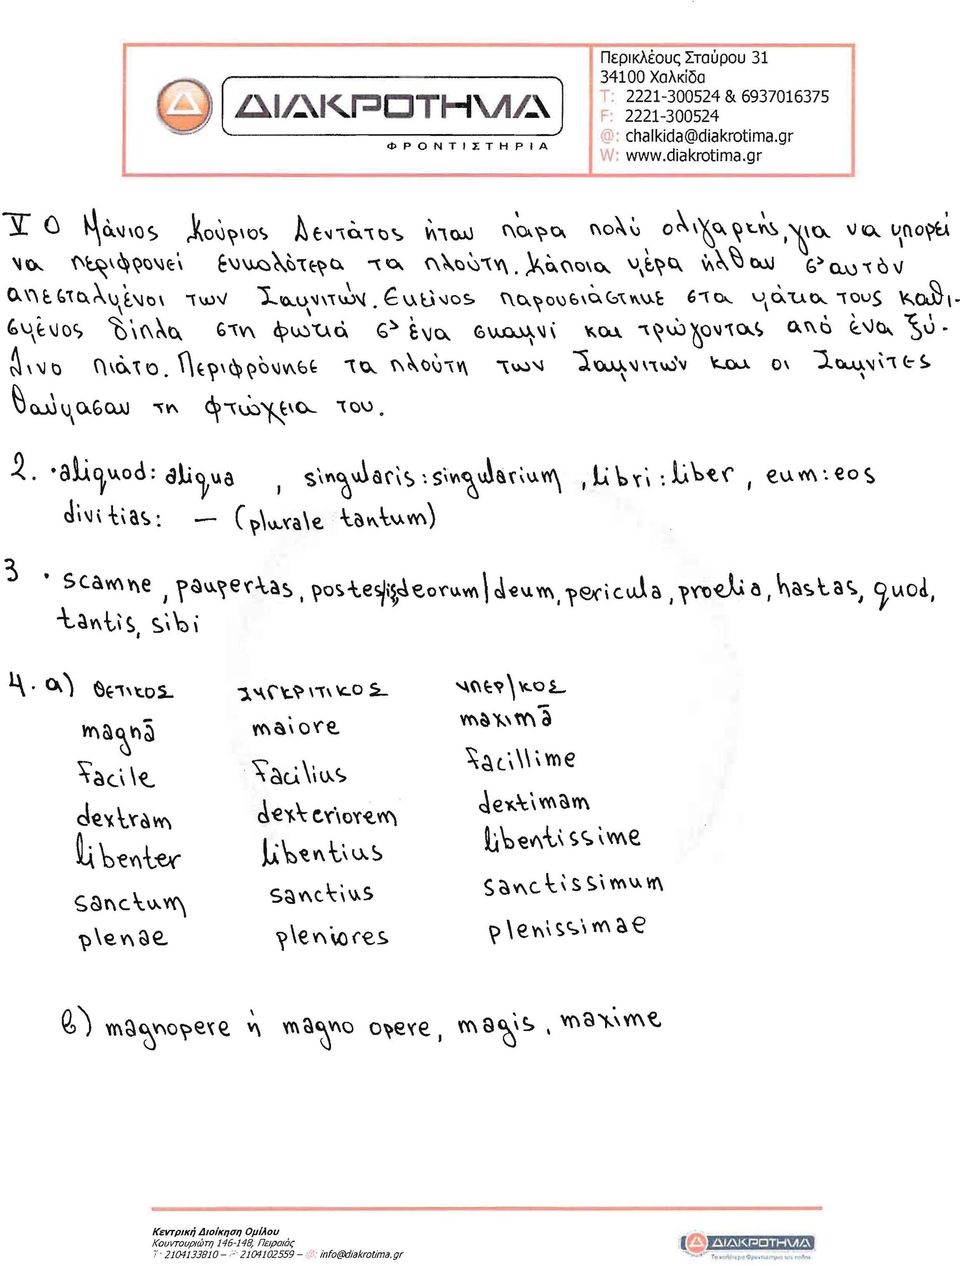 Περικλέους Σταύρου 31
34100 Χαλκίδα
ΔΙΑΚΡΟΤΗΜΑ
T: 2221-300524 & 6937016375
F: 2221-300524
ΦΡΟΝΤΙΣΤΗΡΙΑ
@: chalkida@diakrotima.gr
W: www.diakrotima.gr
V Ο Μάνιος Κούριος Δεντάτος ήταν πάρα πολύ ολιγαρκής, για να μπορεί
να περιφρονεί ευκολότερα τα πλούτη. Κάποια μέρα ήλθαν σ' αυτόν
απεσταλμένοι των Σαμνιτών. Εκείνος παρουσιάστηκε στα μάτια τους καθι-
σμένος δίπλα στη φωτιά σ' ένα σκαμνί και τρώγοντας από ένα ξύ-
λινο πιάτο. Περιφρόνησε τα πλούτη των Σαμνιτών και οι Σαμνίτες
θαύμασαν τη φτώχεια του.
2. • aliquod: aliqua , singularis: singularium , libri: liber , eum: eos
divitias: — (plurale tantum)
3 • scamne, paupertas, postes/is, deorum/deum, pericula, proelia, hastas, quod,
tantis, sibi
4. α) ΘΕΤΙΚΟΣ ΣΥΓΚΡΙΤΙΚΟΣ ΥΠΕΡ/ΚΟΣ
magnā maiore maximā
facile facilius facillime
dextram dexteriorem dextimam
libenter libentius libentissime
sanctum sanctius sanctissimum
plenae pleniores plenissimae
β) magnopere ή magno opere, magis, maxime
Κεντρική Διοίκηση Ομίλου
Κουντουριώτη 146-148, Πειραιάς
T: 2104133810 – F: 2104102559 – @: info@diakrotima.gr
ΔΙΑΚΡΟΤΗΜΑ